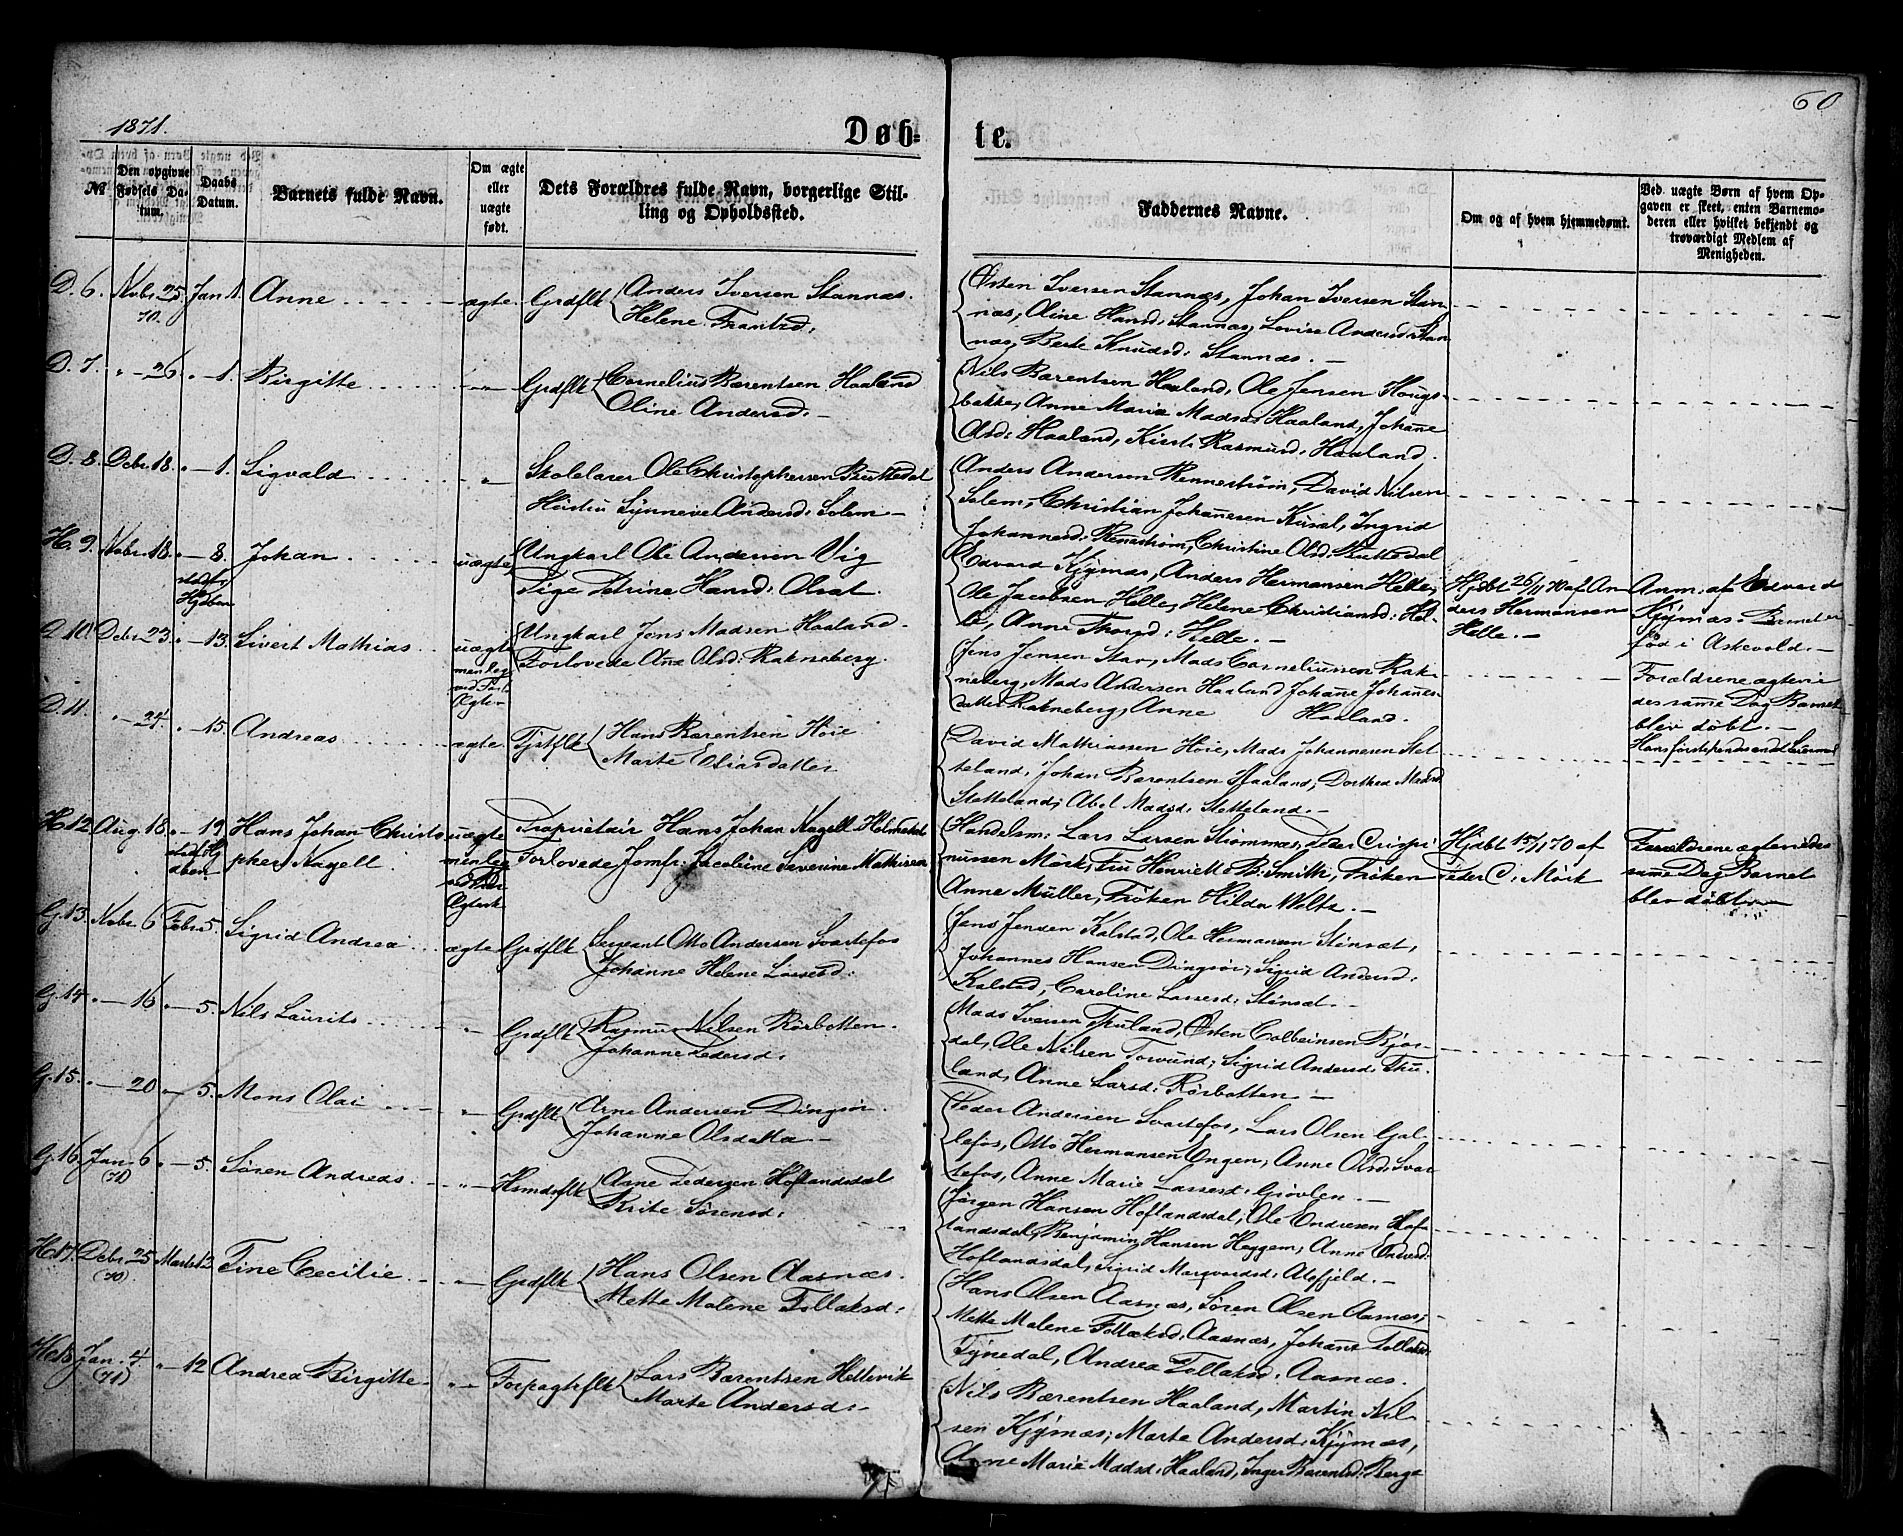 1871.
Døb-
te.
60
№
Den opgivne Fødsels Datum.
Daabs Datum.
Barnets fulde Navn.
Om ægte eller uægte født.
Dets Forældres fulde Navn, borgerlige Stilling og Opholdssted.
Faddernes Navne.
Om og af hvem hjemmedøbt.
Ved uægte Børn af hvem Opgaven er skeet, enten Barnemoderen eller hvilket bekjendt og troværdigt Medlem af Menigheden.
D. 6. Novbr. 25. 70. Jan. 1. Anne ægte Grdflk Anders Iversen Stannæs.
Helene Frantsd:
Østen Iversen Stannæs, Johan Iversen Stan-
næs, Oline Hansd: Stannæs, Lovise Andersd: Stan-
næs, Berte Knudsd: Stannæs. —
D. 7. " — 26 " — 1. Birgitte " Grdflk Cornelius Bærentsen Haaland
Oline Andersd. —
Nils Bærentsen Haaland, Ole Jensen Hougs-
bakke, Anne Maria Madsd: Haaland, Johane
Olsd: Haaland, Kirst. Rasmusd: Haaland.
D. 8. Debr. 18. " — 1. Sigvald " Skolelærer Ole Christophersen Buttedal
Hustru Synneve Andersd: Solem —
Anders Andersen Rennestrøm, David Nilsen
Solem, Christian Johanesen Kusal, Ingrid
Johannesd: Rennestrøm, Christine Olsd: Buttedal
H. 9. Novbr. 18. " — 8. Johan uægte Ungkarl Ole Andersen Vig
Pige Petrine Hansd:
Edvard Kjymæs, Anders Hermansen Helle,
Ole Jacobsen Helle, Helene Christiansd: Hel-
le, Anne Thorsd: Helle. —
Hjdbt 26/11 70 af An-
ders Hermansen
Helle. —
Anm. af Edvard
Kjymæs. Barnet er
fød i Askevold. —
D. 10. Debr. 23. " — 13. Sivert Mathias uægte Ungkarl Jens Madsen Haaland.
Forlovede Ane Olsd: Rakneberg.
Jens Jensen Stav, Mads Corneliussen Rak-
neberg, Mads Andersen Haaland, Johane Johanes-
datter Rakneberg, Anne Haaland.
Forældrene ægtevie-
des same Dag Barnet
blev døbt. —
D. 11. " — 24. " — 15. Andreas ægte Hans Bærentsen Høie
Marte Eliasdatter
David Mathiassen Høie, Mads Johannesen Stet-
teland, Johan Bærentsen Haaland, Dorthea Madsd:
Stetteland, Abel Madsd: Stetteland. —
H. 12. Aug. 18. " — 19 Hans Johan Christo-
pher Nagell uægte Proprietair Hans Johan Nagell Holmedal
Forlovede Jomfr: Jacobine Severine Mathisen
Handelsm: Lars Larsen Strømmæs, Peder Crispi-
nussen Mørk, Fru Henriette B. Smith, Frøken
Anne Müller, Frøken Hilda Welts. —
Hjdbt 15/11 70 af
Peder C. Mørk
Forældrene ægteviedes
same Dag Barnet
blev døbt —
G. 13. Novbr. 6 Febr. 5. Sigrid Andrea ægte Grdflk Sergeant Otto Andersen Svartefos
Johanne Helene Lassesd:
Jens Jensen Kalstad, Ole Hermansen Stensæt,
Johannes Hansen Dingsør, Sigrid Andersd:
Kalstad, Caroline Lassesd: Stensæt. —
G. 14. " — 16 " — 5. Nils Laurits " Grdflk Rasmus Nilsen Rørbotten.
Johanne Pedersd:
Mads Iversen Thuland, Østen Colbeinsen Bjor-
dal, Ole Nilsen Torvund, Sigrid Andersd: Thu-
land, Anne Larsd: Rørbotten —
G. 15. " — 20 " — 5. Mons Olai " Grdflk Arne Andersen Dingsør.
Johanne Olsdatter —
Peder Andersen Svartefos, Lars Olsen Gal-
lefos, Otto Hermansen Engen, Anne Olsd: Svar-
tefos, Anne Marie Lassesd: Gjovlen. —
G. 16. Jan. 6 (71) " — 5. Søren Andreas " Hsmdsflk Aane Pedersen Høflandsdal
Brite Sørensd:
Jørgen Hansen Høflandsdal, Ole Endresen Høf-
landsdal, Benjamin Hansen Heggem, Anne Endresd:
Høflandsdal, Sigrid Marqvardsd: Alefjeld. —
H. 17. Debr. 25 (70) Marts 12. Tine Cecilie " Grdflk Hans Olsen Aasnæs.
Mette Malene Tollaksd:
Hans Olsen Aasnæs, Søren Olsen Aasnæs,
Mette Malene Tollaksd: Aasnæs, Johane Tollaksd:
Tynedal, Andrea Tollaksd: Aasnæs.
H. 18. Jan. 4. (71) " — 12 Andrea Birgitte " Forpagtrflk Lars Bærentsen Hellevik
Marte Andersd: —
Nils Bærentsen Haaland, Martin Nil-
sen Kjymæs, Marte Andersd: Kjymæs,
Anne Marie Madsd: Haaland, Inger Bærentsd: Berge